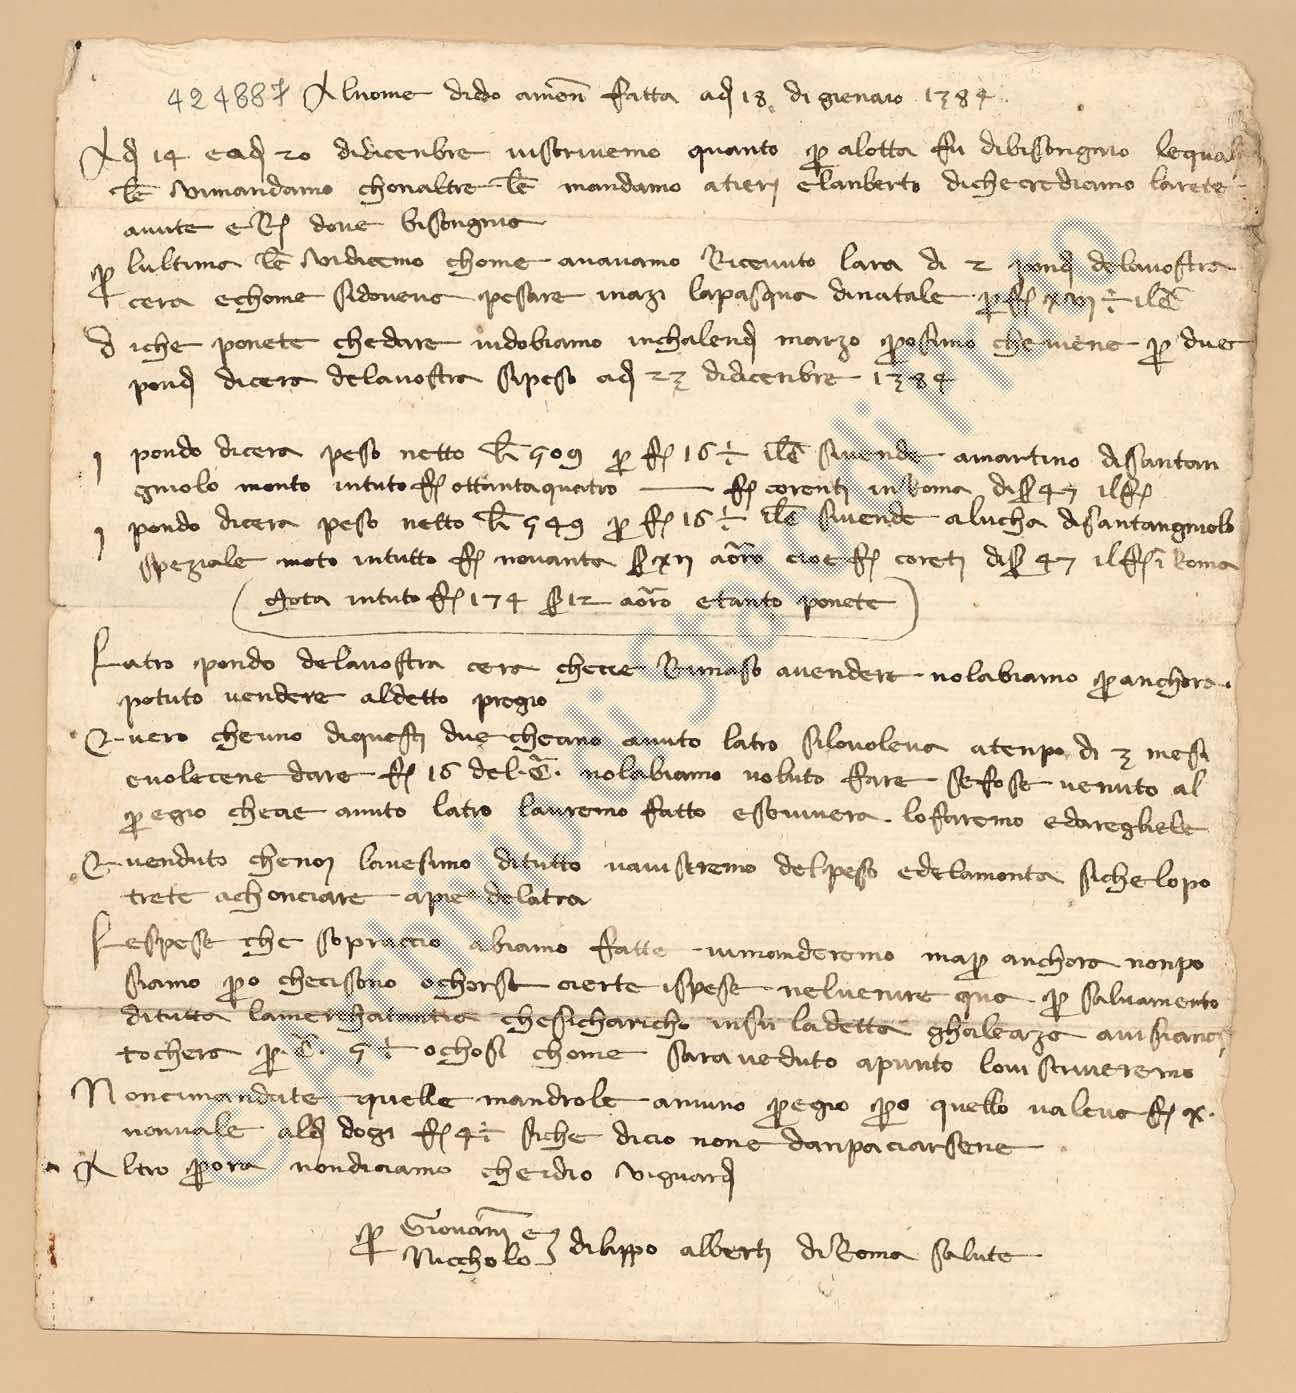 424887 Al nome didio amen fatta adi 18 di gienaio 1384
Adi 14 e adi 20 didicenbre viscrivemo quanto per alotta fu dibisongnio lequali
lettere vimandamo chonaltre lettere mandamo atieri elanberto dichecrediamo larete
avute e dove bisongnia
per lultima lettera vidicemo chome avavamo Ricevuto lara di 2 pondi delavostra
cera echome sidoveva pesare inazi lapasqua dinatale per f xvi ÷ ilc
diche ponete chedare vidobiamo inchalendi marzo prosimo cheviene per due
pondi dicera delavostra sipeso adi 23 didicenbre 1384
1 pondo dicera peso netto lb 509 per f 16 ÷ ilc sivende amartino disantan
gniolo monto intuto f ottantaquatro — f corenti inRoma dis 47 ilf
1 pondo dicera peso netto lb 549 per f 16 ÷ ilc sivende alucha disantangniolo
speziale moto intutto f novanta s xii aoro cioe f coreti dis 47 ilf i Roma
Mota intuto f 174 s 12 aoro etanto ponete
Latro pondo delavostra cera checie Rimaso avendere nolabiamo peranchora
potuto vendere aldetto pregio
E vero cheuno diquesti due cheano avuto latro silovoleva atenpo di 3 mesi
evolecene dare f 16 del c. nolabiamo voluto fare sefose venuto al
pregio checie avuto latro lavremo fatto esevivera lofaremo edaregliele
E venduto chenoi lavesimo ditutto naviseremo delpeso edelamonta sichelopo
trete achonciare apie delatra
Lespese che sopraccio abiamo fatte vimanderemo maper anchora nonpo
siamo pero checisono ochorse cierte ispese nelvenire qua per salvamento
ditutta lamerchatantia chesicharicho insu ladetta ghaleazza avisianci
tochera per c. 5 ÷ ochosi chome sara veduto apunto lovi scriveremo
Noncimandate quelle mandrole aniuno pregio pero quello valeva f x.
nonvale aldi dogi f 4 ÷ siche dicio none danpaciarsene
Altro perora nondiciamo cheidio viguardi
per Giovanni e
Niccholo dilippo alberti diRoma salute